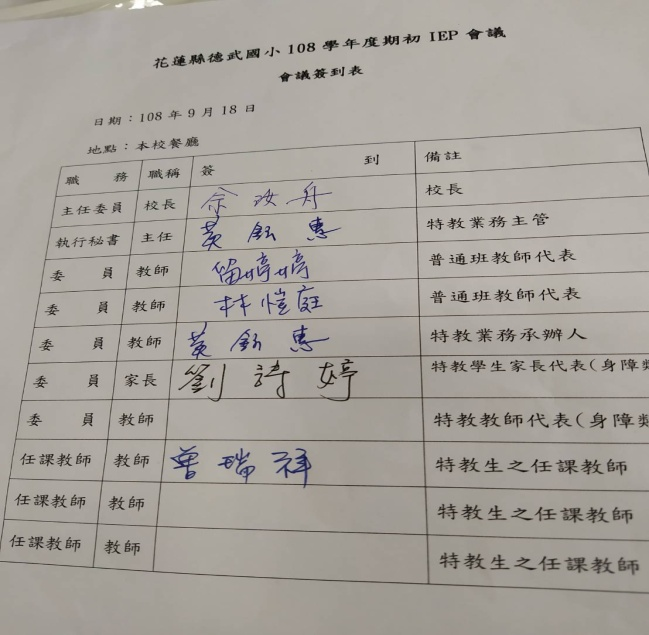 花蓮縣德武國小 108 學年度期初 IEP 會議
會議簽到表
日期：108 年 9 月 18 日
地點：本校餐廳
職 務 職稱 簽 到 備註
主任委員 校長 余汝舟 校長
執行秘書 主任 黃鈺惠 特教業務主管
委 員 教師 留婷婷 普通班教師代表
委 員 教師 林愷庭 普通班教師代表
委 員 教師 黃鈺惠 特教業務承辦人
委 員 家長 劉詩婷 特教學生家長代表（身障類
委 員 教師 特教教師代表（身障類
任課教師 教師 曾瑞祥 特教生之任課教師
任課教師 教師 特教生之任課教師
任課教師 教師 特教生之任課教師